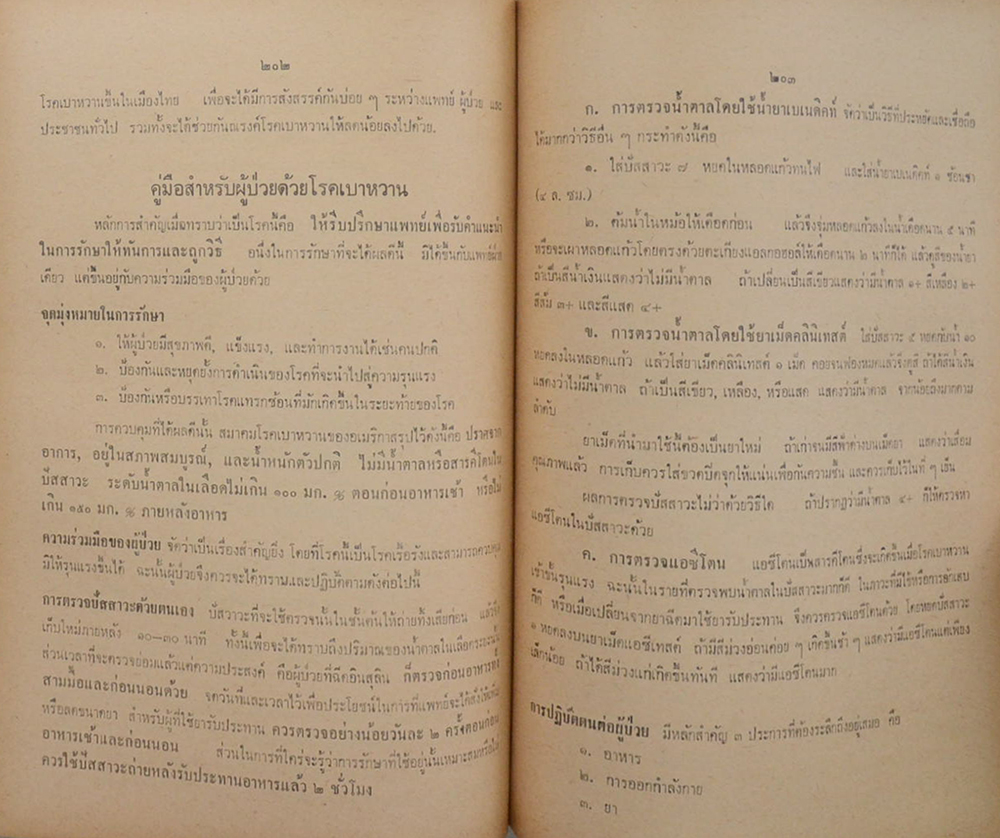 ๒๐๒
โรคเบาหวานขึ้นในเมืองไทย เพื่อจะได้มีการสังสรรค์กันบ่อย ๆ ระหว่างแพทย์ ผู้ป่วย และ
ประชาชนทั่วไป รวมทั้งจะได้ช่วยกันณรงค์โรคเบาหวานให้ลดน้อยลงไปด้วย.
คู่มือสำหรับผู้ป่วยด้วยโรคเบาหวาน
หลักการสำคัญเมื่อทราบว่าเป็นโรคนี้คือ ให้รีบปรึกษาแพทย์เพื่อรับคำแนะนำ
ในการรักษาให้ทันการและถูกวิธี อนึ่งในการรักษาที่จะได้ผลดีนี้ มิได้ขึ้นกับแพทย์ฝ่าย
เดียว แต่ขึ้นอยู่กับความร่วมมือของผู้ป่วยด้วย
จุดมุ่งหมายในการรักษา
๑. ให้ผู้ป่วยมีสุขภาพดี, แข็งแรง, และทำการงานได้เช่นคนปกติ
๒. ป้องกันและหยุดยั้งการดำเนินของโรคที่จะนำไปสู่ความรุนแรง
๓. ป้องกันหรือบรรเทาโรคแทรกซ้อนที่มักเกิดขึ้นในระยะท้ายของโรค
การควบคุมที่ได้ผลดีนั้น สมาคมโรคเบาหวานของอเมริกาสรุปไว้ดังนี้คือ ปราศจาก
อาการ, อยู่ในสภาพสมบูรณ์, และน้ำหนักตัวปกติ ไม่มีน้ำตาลหรือสารคีโตนใน
ปัสสาวะ ระดับน้ำตาลในเลือดไม่เกิน ๑๐๐ มก. % ตอนก่อนอาหารเช้า หรือไม่
เกิน ๑๕๐ มก. % ภายหลังอาหาร
ความร่วมมือของผู้ป่วย จัดว่าเป็นเรื่องสำคัญยิ่ง โดยที่โรคนี้เป็นโรคเรื้อรังและสามารถควบคุม
มิให้รุนแรงขึ้นได้ ฉะนั้นผู้ป่วยจึงควรจะได้ทราบและปฏิบัติตามดังต่อไปนี้
การตรวจปัสสาวะด้วยตนเอง ปัสวาวะที่จะใช้ตรวจนั้นในชั้นต้นให้ถ่ายทิ้งเสียก่อน แล้วจึง
เก็บใหม่ภายหลัง ๑๐—๓๐ นาที ทั้งนี้เพื่อจะได้ทราบถึงปริมาณของน้ำตาลในเลือดระยะนั้น
ส่วนเวลาที่จะตรวจย่อมแล้วแต่ความประสงค์ คือผู้ป่วยที่ฉีดอินสุลิน ก็ตรวจก่อนอาหารทั้ง
สามมื้อและก่อนนอนด้วย จดวันที่และเวลาไว้เพื่อประโยชน์ในการที่แพทย์จะได้สั่งให้เพิ่ม
หรือลดขนาดยา สำหรับผู้ที่ใช้ยารับประทาน ควรตรวจอย่างน้อยวันละ ๒ ครั้งตอนก่อน
อาหารเช้าและก่อนนอน ส่วนในการที่ใคร่จะรู้ว่าการรักษาที่ใช้อยู่นั้นเหมาะสมหรือไม่
ควรใช้ปัสสาวะถ่ายหลังรับประทานอาหารแล้ว ๒ ชั่วโมง
๒๐๓
ก. การตรวจน้ำตาลโดยใช้น้ำยาเบเนดิคท์ จัดว่าเป็นวิธีที่ประหยัดและเชื่อถือ
ได้มากกว่าวิธีอื่น ๆ กระทำดังนี้คือ
๑. ใส่ปัสสาวะ ๗ หยดในหลอดแก้วทนไฟ และใส่น้ำยาเบเนดิคท์ ๑ ช้อนชา
(๔ ล. ซม.)
๒. ต้มน้ำในหม้อให้เดือดก่อน แล้วจึงจุ่มหลอดแก้วลงในน้ำเดือดนาน ๕ นาที
หรือจะเผาหลอดแก้วโดยตรงด้วยตะเกียงแอลกอฮอล์ให้เดือดนาน ๒ นาทีก็ได้ แล้วดูสีของน้ำยา
ถ้าเป็นสีน้ำเงินแสดงว่าไม่มีน้ำตาล ถ้าเปลี่ยนเป็นสีเขียวแสดงว่ามีน้ำตาล ๑+ สีเหลือง ๒+
สีส้ม ๓+ และสีแสด ๔+
ข. การตรวจน้ำตาลโดยใช้ยาเม็ดคลินิเทสต์ ใส่ปัสสาวะ ๕ หยดกับน้ำ ๑๐
หยดลงในหลอดแก้ว แล้วใส่ยาเม็ดคลินิเทสต์ ๑ เม็ด คอยจนฟองหมดแล้วจึงดูสี ถ้าได้สีน้ำเงิน
แสดงว่าไม่มีน้ำตาล ถ้าเป็นสีเขียว, เหลือง, หรือแสด แสดงว่ามีน้ำตาล จากน้อยถึงมากตาม
ลำดับ
ยาเม็ดที่นำมาใช้นี้ต้องเป็นยาใหม่ ถ้าเก่าจนมีสีฟ้าด่างบนเม็ดยา แสดงว่าเสื่อม
คุณภาพแล้ว การเก็บควรใส่ขวดปิดจุกให้แน่นเพื่อกันความชื้น และควรเก็บไว้ในที่ ๆ เย็น
ผลการตรวจปัสสาวะไม่ว่าด้วยวิธีใด ถ้าปรากฏว่ามีน้ำตาล ๔+ ก็ให้ตรวจหา
แอซีโตนในปัสสาวะด้วย
ค. การตรวจแอซีโตน แอซีโตนเป็นพวกคีโตนซึ่งจะเกิดขึ้นเมื่อโรคเบาหวาน
เข้าขั้นรุนแรง ฉะนั้นในรายที่ตรวจพบน้ำตาลในปัสสาวะมากก็ดี ในภาวะที่มีไข้หรือการอักเสบ
ก็ดี หรือเมื่อเปลี่ยนจากยาฉีดมาใช้ยารับประทาน จึงควรตรวจแอซีโตนด้วย โดยหยดปัสสาวะ
๑ หยดลงบนยาเม็ดแอซีเทสต์ ถ้ามีสีม่วงอ่อนค่อย ๆ เกิดขึ้นช้า ๆ แสดงว่ามีแอซีโตนแต่เพียง
เล็กน้อย ถ้าได้สีม่วงแก่เกิดขึ้นทันที แสดงว่ามีแอซีโตนมาก
การปฏิบัติตนต่อผู้ป่วย มีหลักสำคัญ ๓ ประการที่ต้องระลึกถึงอยู่เสมอ คือ
๑. อาหาร
๒. การออกกำลังกาย
๓. ยา